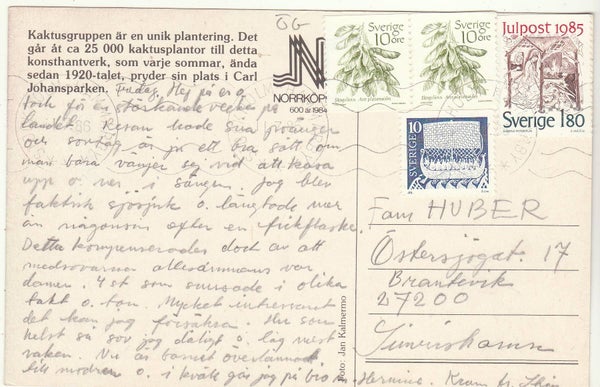 Kaktusgruppen är en unik plantering. Det
går åt ca 25 000 kaktusplantor till detta
konsthantverk, som varje sommar, ända
sedan 1920-talet, pryder sin plats i Carl
Johansparken.
Fredag. Hej på er o.
tack för en stärkande
landet. Resan hade sina
och sovtåg är ju ett bra sätt om
man bara vänjer sig vid att kasa
upp o. ner i sängen. Jag blev
faktiskt sjösjuk o. längtade mer
än någonsin efter en fickflaska.
Detta kompenserades dock av att
medsovarna allesammans var
damer. 4 st som snusade i olika
takt o. ton. Mycket intressant
det kan jag försäkra. Hur som
helst så sov jag dåligt o. låg mest
vaken. Nu är barnet överlämnat
till modern o. i kväll går jag på bio
NORRKÖP
600 år 1984
Sverige
10 öre
Sverige
10 öre
Julpost 1985
Sverige 1.80
SVERIGE
10
Fam HUBER
Östersjögat. 17
Brantevik
27200
Simrishamn
Foto: Jan Kalmermo